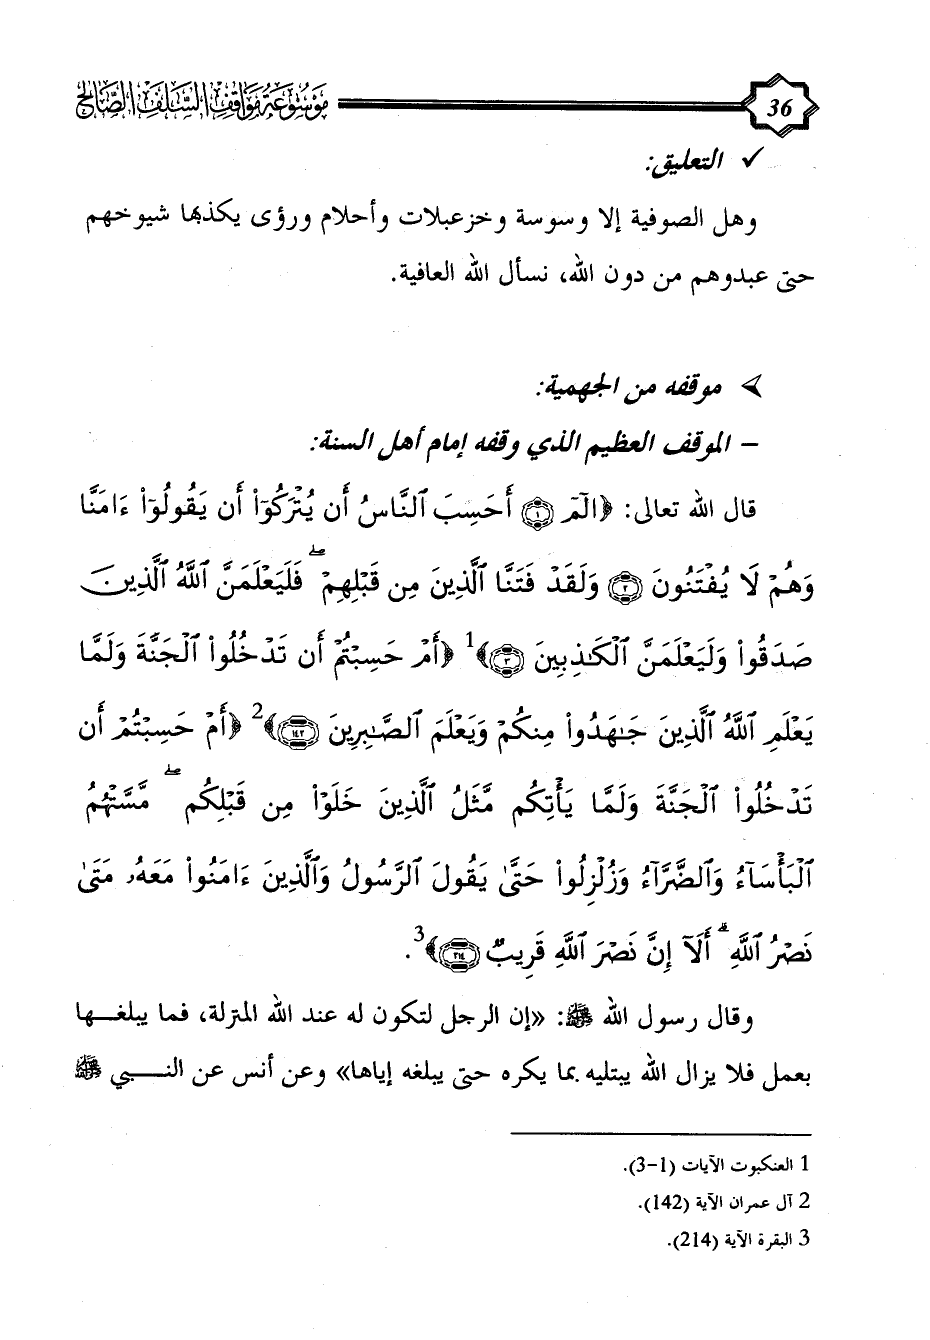 36 موسوعة مواقف السلف الصالح
✓ التعليق:
وهل الصوفية إلا وسوسة وخزعبلات وأحلام ورؤى يكذبها شيوخهم
حتى عبدوهم من دون الله، نسأل الله العافية.
➢ موقفه من الجهمية:
– الموقف العظيم الذي وقفه إمام أهل السنة:
قال الله تعالى: ﴿الٓمٓ ۝١ أَحَسِبَ ٱلنَّاسُ أَن يُتْرَكُوٓا۟ أَن يَقُولُوٓا۟ ءَامَنَّا
وَهُمْ لَا يُفْتَنُونَ ۝٢ وَلَقَدْ فَتَنَّا ٱلَّذِينَ مِن قَبْلِهِمْ ۖ فَلَيَعْلَمَنَّ ٱللَّهُ ٱلَّذِينَ
صَدَقُوا۟ وَلَيَعْلَمَنَّ ٱلْكَٰذِبِينَ ۝٣﴾1 ﴿أَمْ حَسِبْتُمْ أَن تَدْخُلُوا۟ ٱلْجَنَّةَ وَلَمَّا
يَعْلَمِ ٱللَّهُ ٱلَّذِينَ جَٰهَدُوا۟ مِنكُمْ وَيَعْلَمَ ٱلصَّٰبِرِينَ ۝١٤٢﴾2 ﴿أَمْ حَسِبْتُمْ أَن
تَدْخُلُوا۟ ٱلْجَنَّةَ وَلَمَّا يَأْتِكُم مَّثَلُ ٱلَّذِينَ خَلَوْا۟ مِن قَبْلِكُم ۖ مَّسَّتْهُمُ
ٱلْبَأْسَآءُ وَٱلضَّرَّآءُ وَزُلْزِلُوا۟ حَتَّىٰ يَقُولَ ٱلرَّسُولُ وَٱلَّذِينَ ءَامَنُوا۟ مَعَهُۥ مَتَىٰ
نَصْرُ ٱللَّهِ ۗ أَلَآ إِنَّ نَصْرَ ٱللَّهِ قَرِيبٌ ۝٢١٤﴾3.
وقال رسول الله ﷺ: «إن الرجل لتكون له عند الله المنزلة، فما يبلغـــها
بعمل فلا يزال الله يبتليه بما يكره حتى يبلغه إياها» وعن أنس عن النـــبي ﷺ
1 العنكبوت الآيات (1-3).
2 آل عمران الآية (142).
3 البقرة الآية (214).